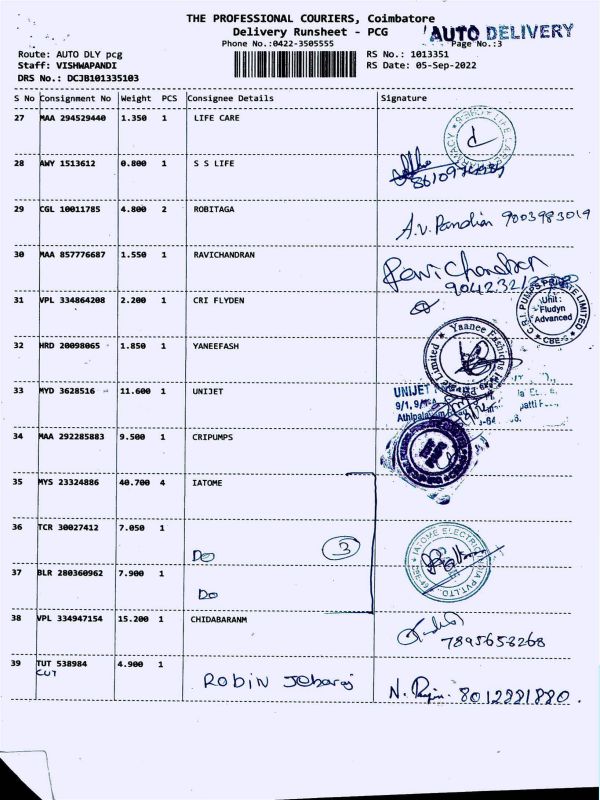 THE PROFESSIONAL COURIERS, Coimbatore
Delivery Runsheet - PCG
AUTO DELIVERY
Phone No.:0422-3505555
Page No.:3
Route: AUTO DLY pcg
RS No.: 1013351
Staff: VISHWAPANDI
RS Date: 05-Sep-2022
DRS No.: DCJB101335103
S No Consignment No Weight PCS Consignee Details Signature
27 MAA 294529440 1.350 1 LIFE CARE
28 AWY 1513612 0.800 1 S S LIFE
29 CGL 10011785 4.800 2 ROBITAGA
A.V. Pandian 9003983019
30 MAA 857776687 1.550 1 RAVICHANDRAN
Ravi Chandran
31 VPL 334864208 2.200 1 CRI FLYDEN
C.R.I. PUMPS PRIVATE LIMITED
Unit :
Fludyn
Advanced
CBE-
32 HRD 20098065 1.850 1 YANEEFASH
Yaanee Fashions
Limited
33 MYD 3628516 11.600 1 UNIJET
UNIJET
9/1, 9/
Athipalayam
34 MAA 292285883 9.500 1 CRIPUMPS
35 MYS 23324886 40.700 4 IATOME
36 TCR 30027412 7.050 1
Do
3
IATOME ELECTRIC INDIA PVT.LTD.
37 BLR 280360962 7.900 1
Do
38 VPL 334947154 15.200 1 CHIDABARANM
7895658268
39 TUT 538984 4.900 1
CUT
Robin Jebaraj
N. 8012881880.